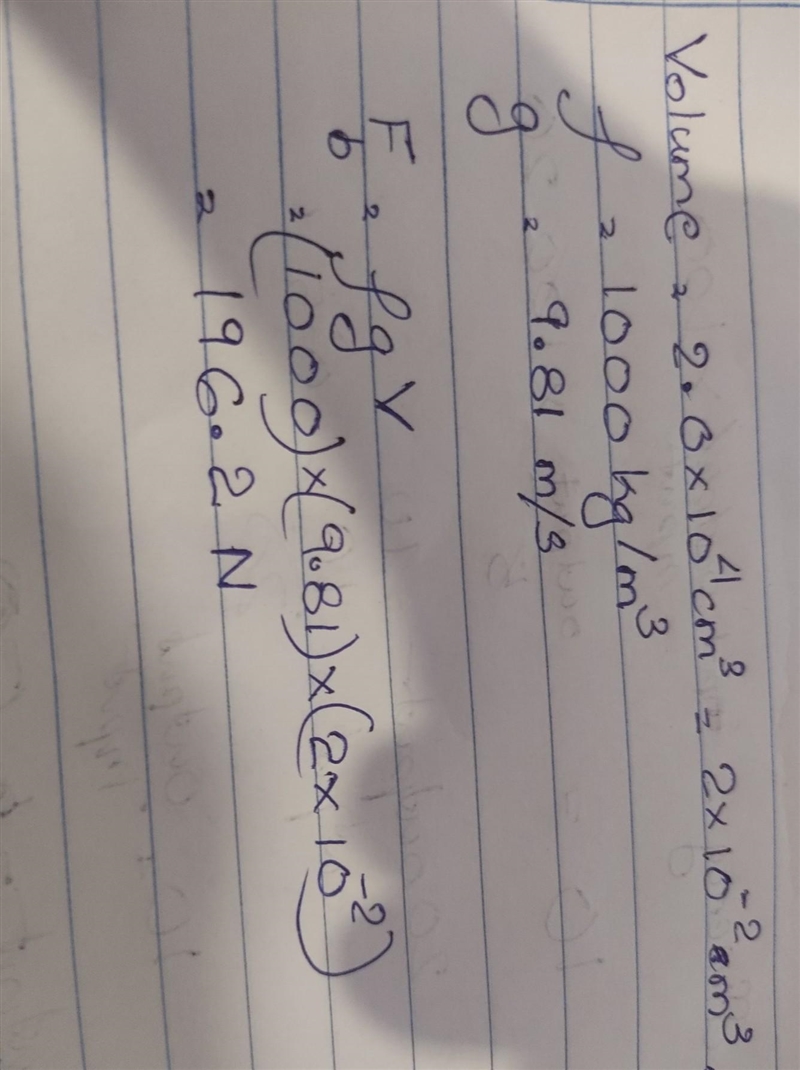 Volume = 2.0×10⁴ cm³ = 2×10⁻² m³
ρ = 1000 kg/m³
g = 9.81 m/s
F_b = ρgV
= (1000)×(9.81)×(2×10⁻²)
= 196.2 N